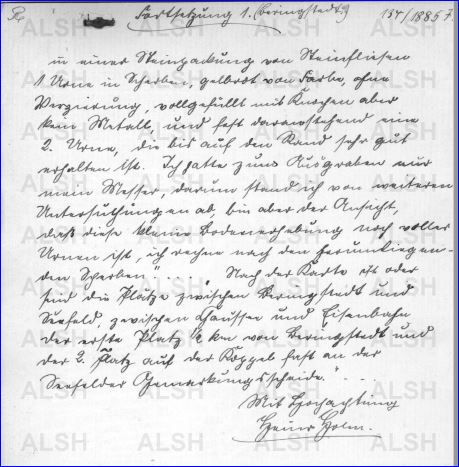 Fortsetzung 1. (Beringstedt) 137/1885 F.
in einer Steinpackung von Steinfliesen
1 Urne in Scherben, gelbrot von Farbe, ohne
Verzierung, vollgefüllt mit Knochen aber
kein Metall, und fast daranstehend eine
2. Urne, die bis auf den Rand sehr gut
erhalten ist. Ich hatte zum Ausgraben nur
mein Messer, darum stand ich von weiteren
Untersuchungen ab, bin aber der Ansicht,
daß diese kleine Bodenerhebung noch voller
Urnen ist, ich rechne nach den herumliegen-
den Scherben" .... Nach der Karte ist oder
sind die Plätze zwischen Beringstedt und
Seefeld, zwischen Chaussee und Eisenbahn
der erste Platz ½ km von Beringstedt und
der 2. Platz auf der Koppel fast an der
Seefelder Gemarkungsscheide." ..
Mit Hochachtung
Heinr Holm.
ALSH ALSH ALSH ALSH